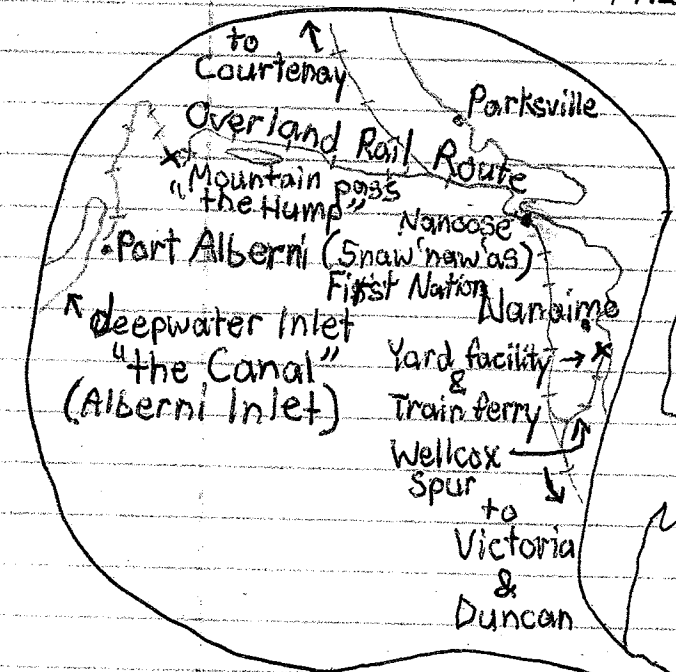 to
Courtenay
Parksville
Overland Rail Route
"Mountain pass
the Hump"
Nanoose
Port Alberni (Snaw'naw'as)
First Nation
Nanaimo
deepwater Inlet
"the Canal"
(Alberni Inlet)
Yard facility
&
Train ferry
Wellcox
Spur
to
Victoria
&
Duncan